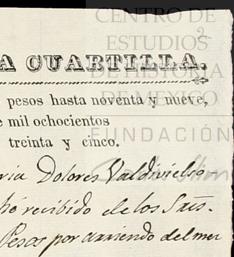 CENTRO DE
ESTUDIOS
DE HISTORIA
DE MEXICO
FUNDACIÓN
A CUARTILLA.
pesos hasta noventa y nueve,
e mil ochocientos
treinta y cinco.
ria Dolores Valdivielso
hé recibido de los Sres.
Pesos por arriendo del mes